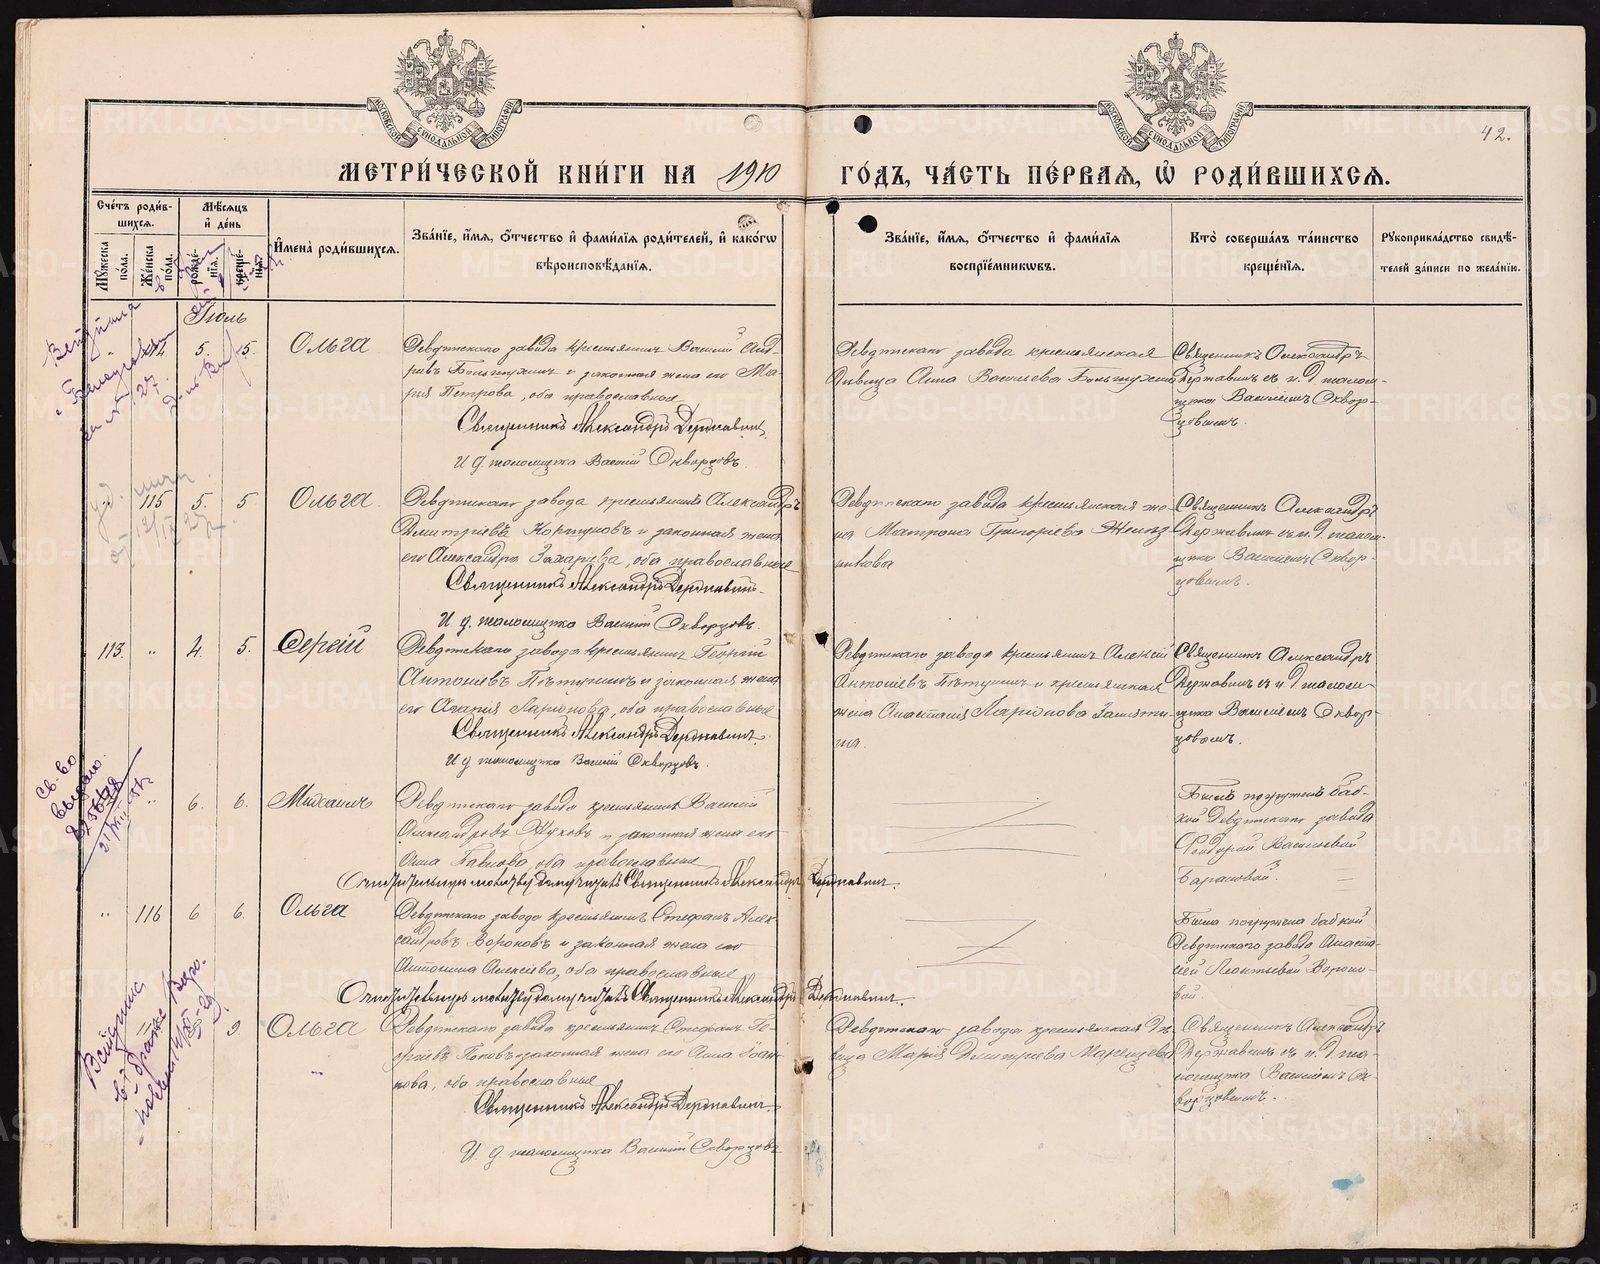 МОСКОВСКОЙ СѴНОДАЛЬНОЙ ТИПОГРАФІИ
МОСКОВСКОЙ СѴНОДАЛЬНОЙ ТИПОГРАФІИ
42.
МЕТРИ́ЧЕСКОЙ КНИ́ГИ НА 1910 ГО́ДЪ, ЧА́СТЬ ПЕ́РВАЯ, Ѡ҆ РОДИ́ВШИХСЯ.
Сче́тъ роди́в-
шихся.
Мѣ́сяцъ
и҆ де́нь
Му́жеска
по́ла.
Же́нска
по́ла.
рожде́-
нїя.
креще-
нїя.
И҆мена̀ роди́вшихся.
Зва́нїе, и҆́мя, ѻ҆́тчество и҆ фами́лїя роди́телей, и҆ како́гѡ
вѣроисповѣ́данїя.
Зва́нїе, и҆́мя, ѻ҆́тчество и҆ фами́лїя
воспрїе́мниковъ.
Кто̀ соверша́лъ та́инство
креще́нїя.
Рукоприкла́дство свидѣ́-
телей за́писи по жела́нїю.
Іюль
" 114 5. 5. Ольга
Ревдинскаго завода крестьянинъ Василій Анд-
и законная жена его Ма-
рія Петрова, оба православные
Священникъ Александръ Державинъ.
И д псаломщика Василій Скворцовъ.
Ревдинскаго завода крестьянская
дѣвица Анна Васильева
Священникъ Александръ
Державинъ съ и. д псалом-
щика Василіемъ Сквор-
цовымъ.
" 115 5. 5 Ольга.
Ревдинскаго завода крестьянинъ Александръ
Дмитріевъ Коршуновъ и законная жена
его Александра Захарова, оба православные
Священникъ Александръ Державинъ.
И. д. псаломщика Василій Скворцовъ.
Ревдинскаго завода крестьянская же-
на Матрона Григорьева
Священникъ Александръ
Державинъ съ и. д псалом-
щика Василіемъ Сквор-
цовымъ.
113. " 4. 5. Сергій
Ревдинскаго завода крестьянинъ Георгій
Антоніевъ Пѣтунинъ и законная жена
его Агапія Ларіонова, оба православные
Священникъ Александръ Державинъ.
И д псаломщика Василій Скворцовъ.
Ревдинскаго завода крестьянинъ Алексій
Антоніевъ Пѣтунинъ и крестьянская
жена Анастасія Ларіонова
Священникъ Александръ
Державинъ съ и д псалом-
щика Василіемъ Сквор-
цовымъ.
Св-во
выдано
" 6. 6. Михаилъ
Ревдинскаго завода крестьянинъ Василій
Александровъ Жуковъ и законная жена его
Анна Павлова, оба православные
Очистительную молитву домучиталъ Священникъ Александръ Державинъ.
Былъ погруженъ баб-
кой Ревдинскаго завода
Ѳеодорой Васильевой
Барановой.
" 116 6 6. Ольга
Ревдинскаго завода крестьянинъ Стефанъ Алек-
сандровъ Вороновъ и законная жена его
Антонина Алексіева, оба православные
Очистительную молитву домучиталъ Священникъ Александръ Державинъ.
Была погружена бабкой
Ревдинскаго завода Анаста-
сіей Леонтьевой Вороно-
вой.
9. Ольга
Ревдинскаго завода крестьянинъ Стефанъ Ге-
оргіевъ Поповъ и законная жена его Анна Іоан-
нова, оба православные
Священникъ Александръ Державинъ.
И. д. псаломщика Василій Скворцовъ
Ревдинскаго завода крестьянская дѣ-
вица Марія Дмитріева
Священникъ Александръ
Державинъ съ и. д пса-
ломщика Василіемъ Ск-
ворцовымъ.
METRIKI.GASO-URAL.RU